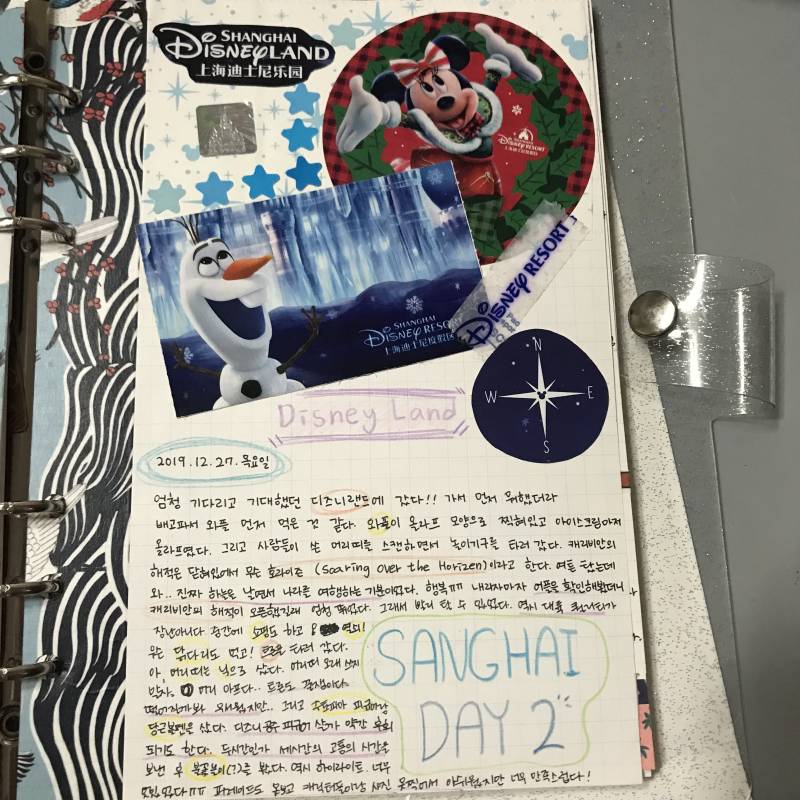 SHANGHAI
DISNEYLAND
上海迪士尼乐园
DISNEY RESORT
SHANGHAI
DISNEY RESORT
上海迪士尼度假区
DISNEY RESORT
N
W E
S
Disney Land
2019.12.27.목요일
엄청 기다리고 기대했던 디즈니랜드에 갔다!! 가서 먼저 뭐했더라
배고파서 와플 먼저 먹은 것 같다. 와플이 올라프 모양으로 찍혀있고 아이스크림마저
올라프였다. 그리고 사람들이 쓴 머리띠를 스캔하면서 놀이기구를 타러 갔다. 캐리비안의
해적은 닫혀있어서 무슨 호라이즌 (Soaring over the Horizen)이라고 한다. 여튼 탔는데
와.. 진짜 하늘을 날면서 나라를 여행하는 기분이었다. 행복ㅠㅠ 내리자마자 어플을 확인해봤더니
캐리비안의 해적이 오픈했길래 엄청 뛰었다. 그래서 바로 탈 수 있었다. 역시 대륙 퀄리티가
장난아니다 중간에 쇼핑도 하고
무슨 닭다리도 먹고! 트론을 타러 갔다.
아, 머리띠는 닉으로 샀다. 머리띠 오래 쓰지
마라. 머리 아프다.. 트론도 꿀잼이다
떨어질까봐 무서웠지만.. 그리고 주토피아 피규어랑
당근볼펜을 샀다. 디즈니공주 피규어 산거 약간 후회
되기도 한다. 두시간인가 세시간의 고통의 시간을
보낸 후 불꽃놀이(?)를 봤다. 역시 하이라이트. 너무
멋있었다ㅠㅠ 퍼레이드도 못보고 캐릭터들이랑 사진 못찍어서 아쉬웠지만 너무 만족스럽다!
SANGHAI
DAY 2